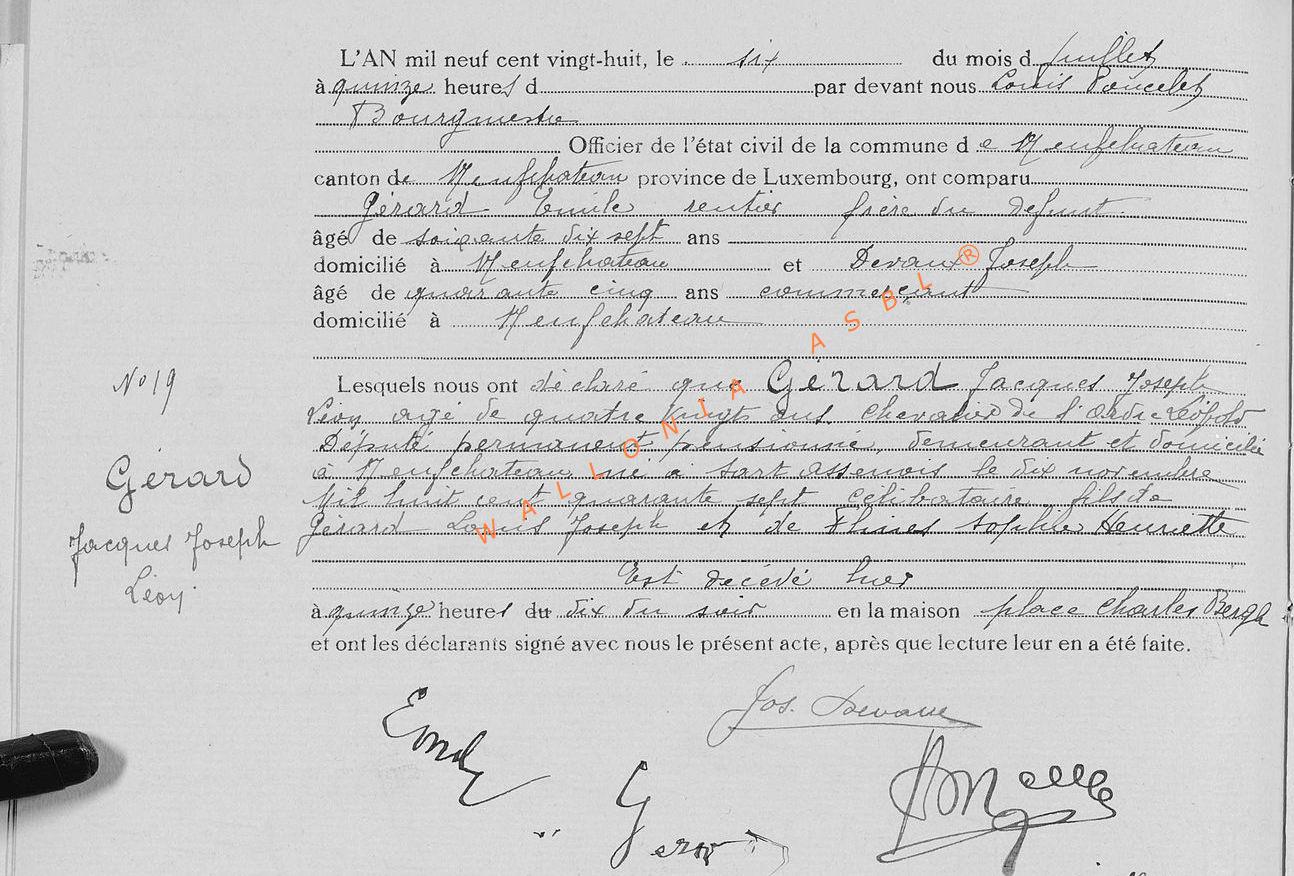 L'AN mil neuf cent vingt-huit, le six du mois d Juillet
à quinze heures d par devant nous Louis Poncelet
Bourgmestre
Officier de l'état civil de la commune d e Neufchateau
canton de Neufchateau province de Luxembourg, ont comparu
Gérard Emile rentier frère du defunt.
âgé de soixante dix sept ans
domicilié à Neufchateau et Devaux Joseph
âgé de quarante cinq ans commerçant
domicilié à Neufchateau
Lesquels nous ont déclaré que Gérard Jacques Joseph
Léon agé de quatre vingts ans Chevalier de l'Ordre Léopold
Député permanent pensionné, demeurant et domicilié
à Neufchateau né à Sart Assenois le dix novembre
Mil huit cent quarante sept célibataire fils de
Gérard Louis Joseph et de Flines Sophie Henriette
Est décédé hier
à quinze heures du dix du soir en la maison place Charles Bergh
et ont les déclarants signé avec nous le présent acte, après que lecture leur en a été faite.
No 19
Gérard
Jacques Joseph
Léon
Jos. Devaux
WALLONIA ASBL ®